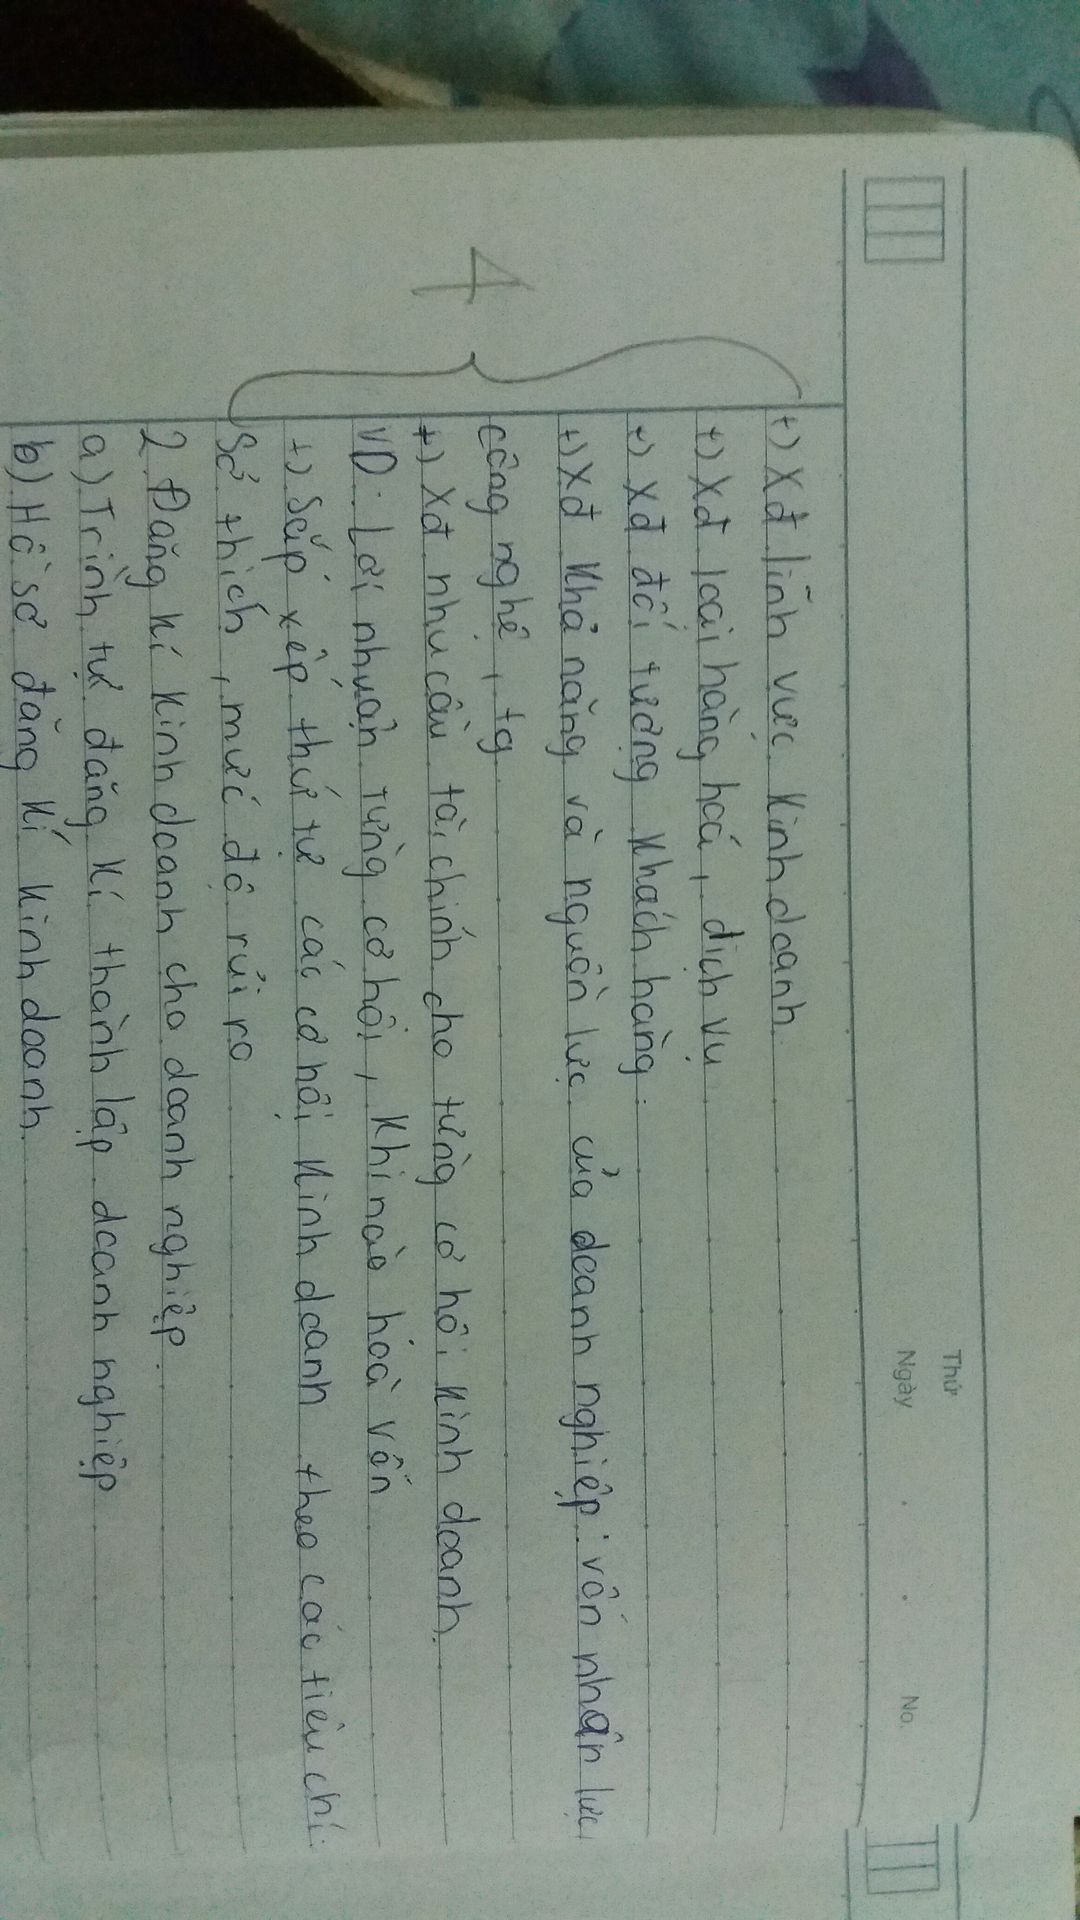 Thứ
Ngày . . No.
+) Xđ lĩnh vực kinh doanh
+) Xđ loại hàng hoá, dịch vụ
+) Xđ đối tượng khách hàng.
+) Xđ khả năng và nguồn lực của doanh nghiệp: vốn nhân lực,
công nghệ, tg
+) Xđ nhu cầu tài chính cho từng cơ hội kinh doanh.
VD: Lợi nhuận từng cơ hội, khi nào hoà vốn
+) Sắp xếp thứ tự các cơ hội kinh doanh theo các tiêu chí:
Sở thích, mức độ rủi ro
4
2. Đăng kí kinh doanh cho doanh nghiệp.
a) Trình tự đăng kí thành lập doanh nghiệp
b) Hồ sơ đăng kí kinh doanh